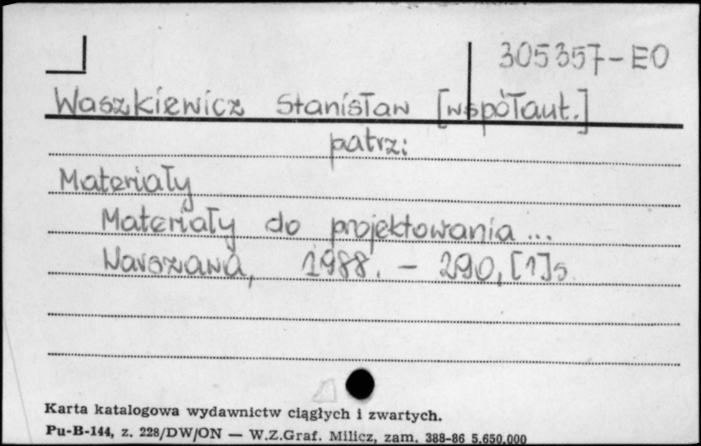 305357-EO
Waszkiewicz Stanisław [współaut.]
patrz:
Materiały
Materiały do projektowania ...
Warszawa, 1988. - 290, [1]s
Karta katalogowa wydawnictw ciągłych i zwartych.
Pu-B-144, z. 228/DW/ON — W.Z.Graf. Milicz, zam. 388-86 5.650.000